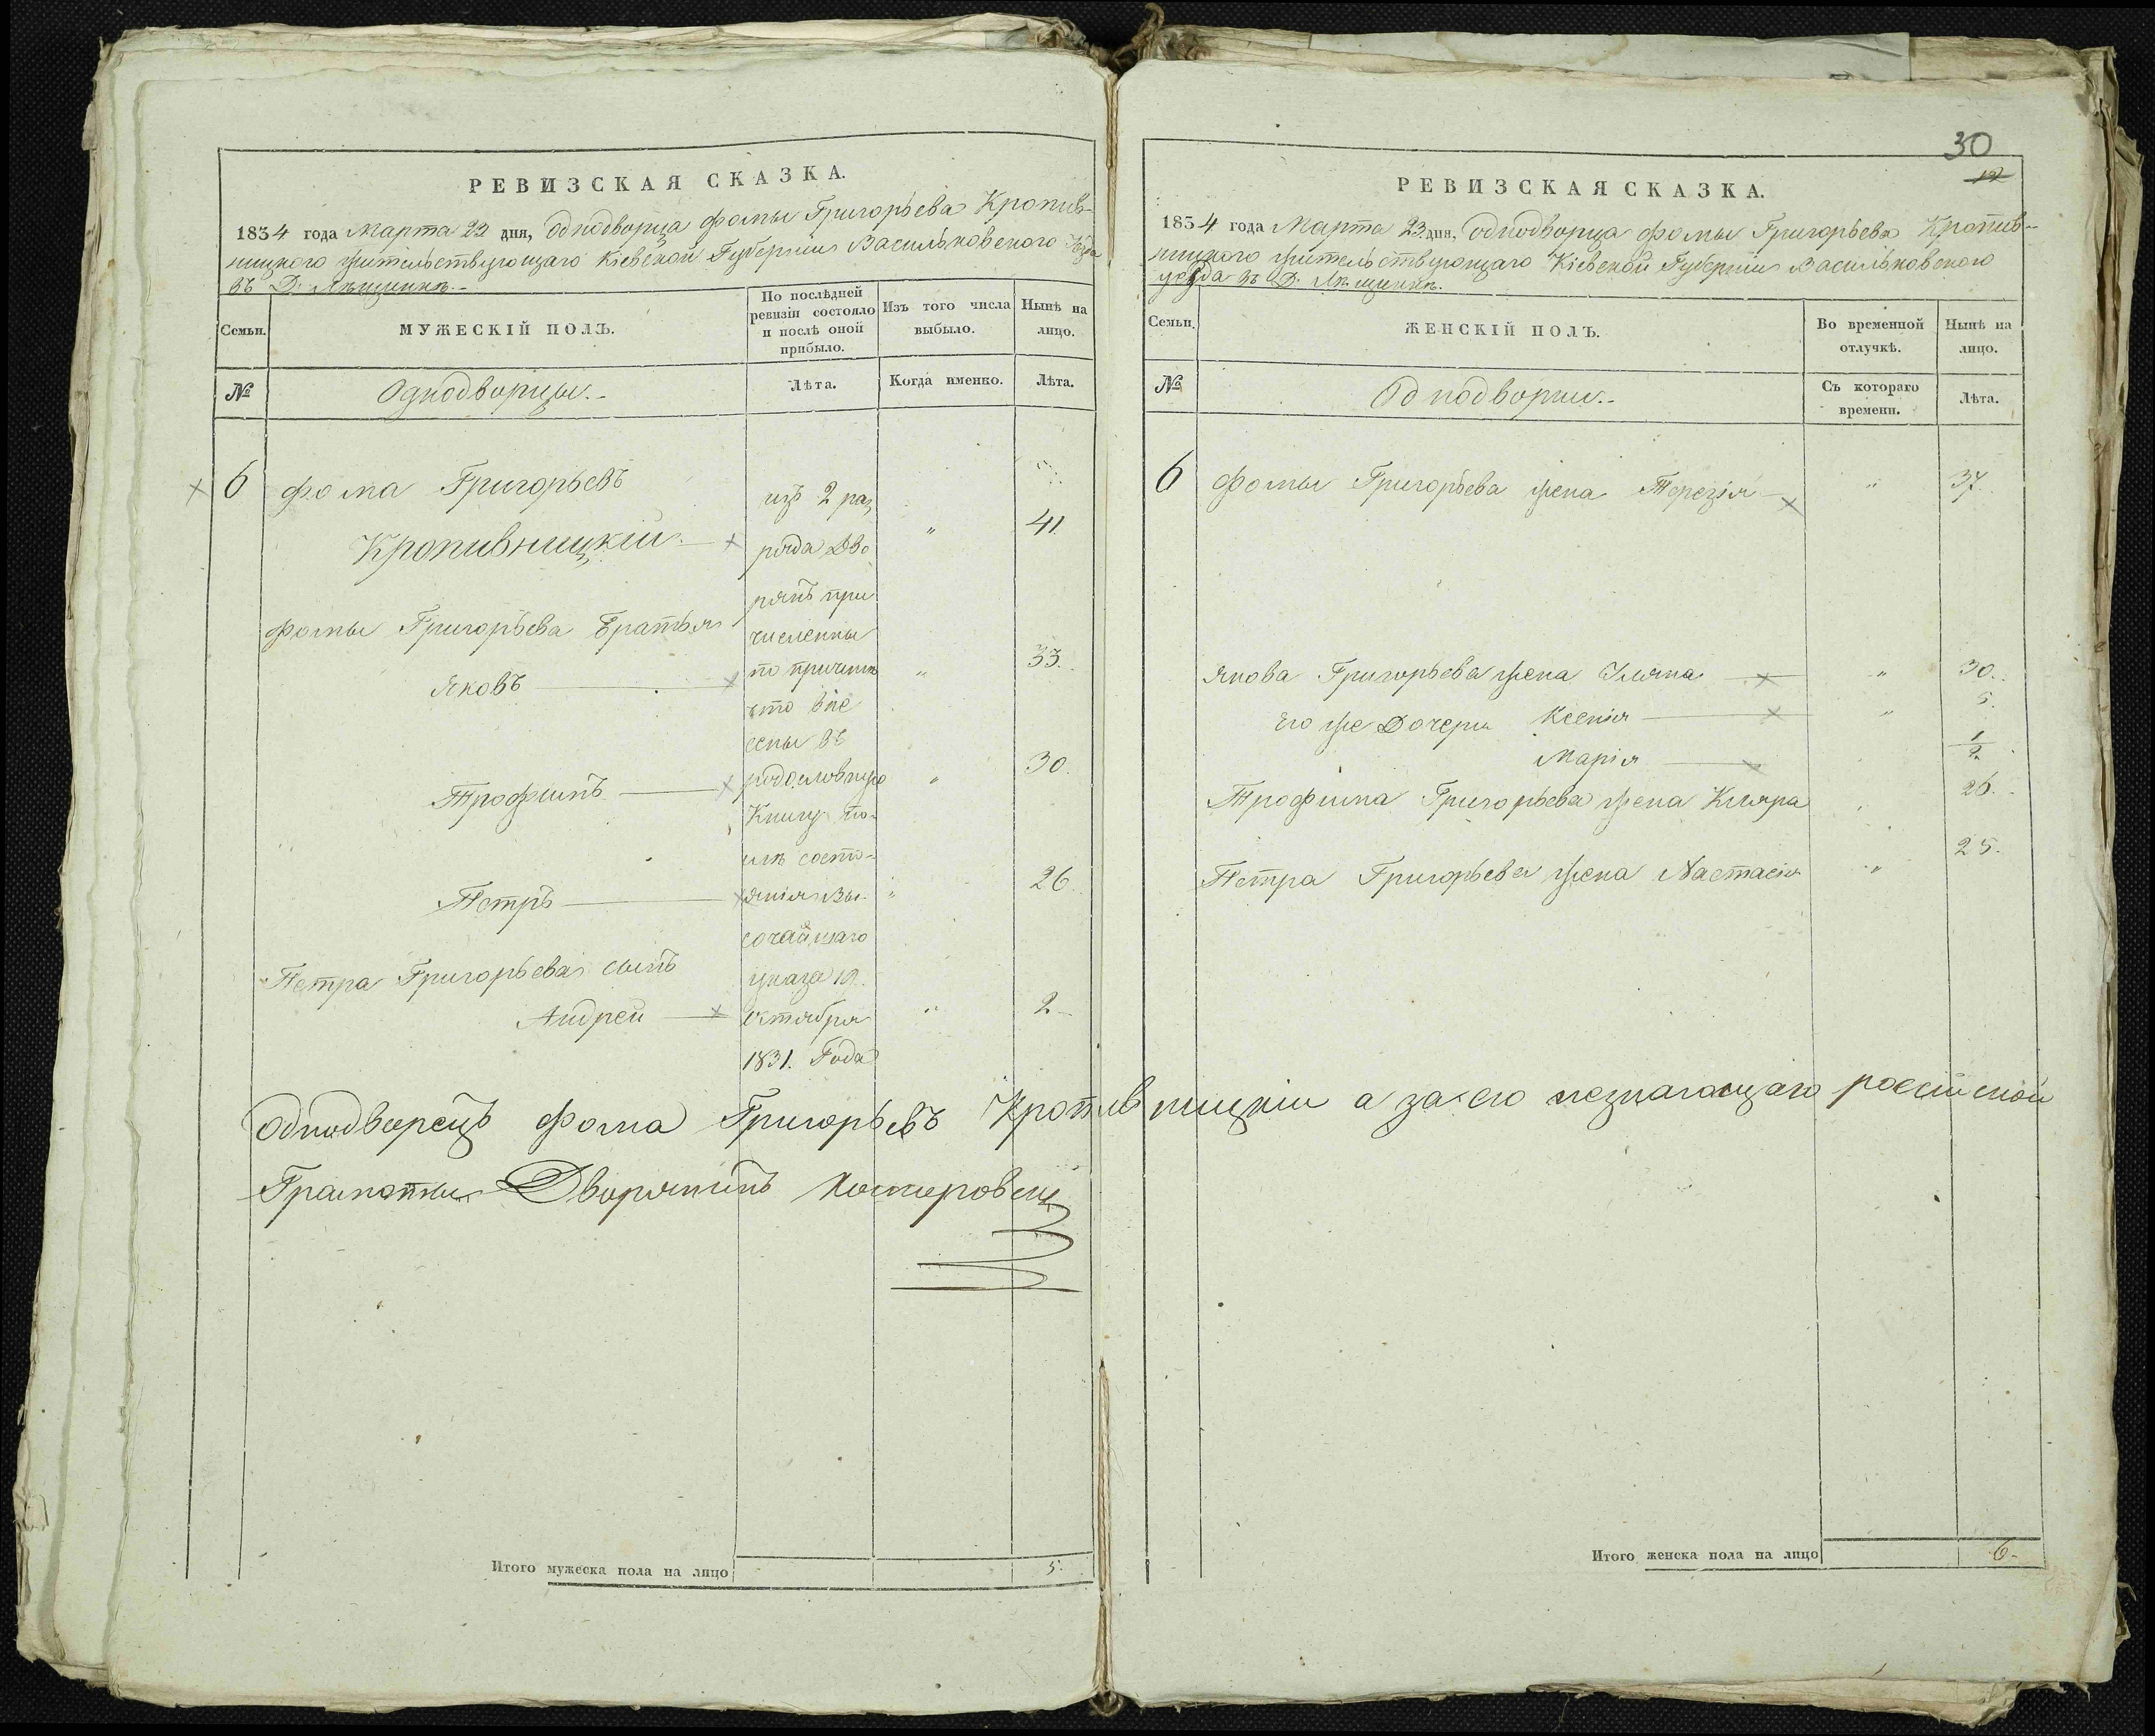 РЕВИЗСКАЯ СКАЗКА.
1834 года Марта 23 дня, Однодворца Фомы Григорьева Кропив-
ницкого жительствующаго Кіевской Губерніи Васильковского уѣзда
въ Д.
Семьи.
МУЖЕСКІЙ ПОЛЪ.
По послѣдней ревизіи состояло и послѣ оной прибыло.
Изъ того числа выбыло.
Нынѣ на лицо.
№
Однодворцы.
Лѣта.
Когда именно.
Лѣта.
6 Фома Григорьевъ
Кропивницкій 41
Фомы Григорьева Братья
Яковъ 33.
Трофимъ 30.
Петръ 26.
Петра Григорьева сынъ
Андрей 2
изъ 2 раз
ряда Дво
рянъ при
численны
по причинѣ
что вне
сены въ
родословную
Книгу по-
слѣ состо-
янія Вы-
сочайшаго
указа 19.
октября
1831. Года
Однодворецъ Фома Григорьевъ Кропивницкій а за его незнающаго россійской
Грамоты Дворянинъ
Итого мужеска пола на лицо 5.
30
РЕВИЗСКАЯ СКАЗКА.
1834 года Марта 23 дня, Однодворца Фомы Григорьева Кропив-
ницкого жительствующаго Кіевской Губерніи Васильковского
уезда въ Д.
Семьи.
ЖЕНСКІЙ ПОЛЪ.
Во временной отлучкѣ.
Нынѣ на лицо.
№
Однодворки.
Съ котораго времени.
Лѣта.
6 Фомы Григорьева жена Терезія " 37.
Якова Григорьева жена " 30.
Его же Дочери Ксенія " 5.
Марія 1/2
Трофима Григорьева жена Кляра 26.
Петра Григорьева жена Настасія " 25.
Итого женска пола на лицо 6.